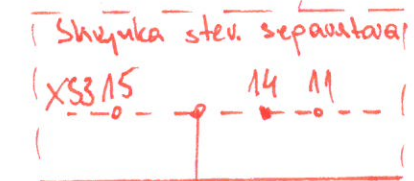 Skrynka stev. separátora
XS3 15 14 11